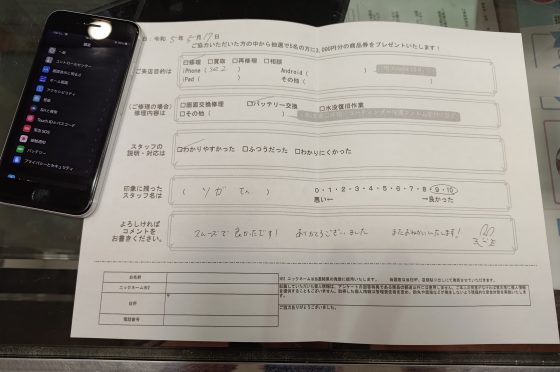 日：令和 5年 5月 17日
ご協力いただいた方の中から抽選で5名の方に3,000円分の商品券をプレゼントいたします！
ご来店目的は
□修理 □買取 □再修理 □相談
iPhone ( se2 ) Android (
iPad ( ) その他 (
(ご修理の場合)
修理内容は
□画面交換修理 □バッテリー交換 □水没復旧作業
□その他 (
スタッフの
説明・対応は
□わかりやすかった □ふつうだった □わかりにくかった
印象に残った
スタッフ名は
( ソガ さん )
0・1・2・3・4・5・6・7・8・9・10
悪い← →良かった
よろしければ
コメントを
お書きください。
スムーズで良かったです！ ありがとうございました またおねがいいたします！
お名前
ニックネーム※2
住所
〒
電話番号
ご協力ありがとうございました。
設定
一般
コントロールセンター
画面表示と明るさ
ホーム画面
アクセシビリティ
壁紙
Siriと検索
Touch IDとパスコード
緊急SOS
接触通知
バッテリー
プライバシーとセキュリティ